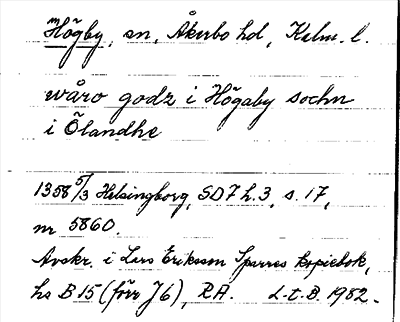 Högby, sn, Åkerbo hd, Kalm. l.
wåro godz i Högaby sochn
i Ölandhe
1358 5/3 Helsingborg, SD 7 h. 3, s. 17,
nr 5860.
Avskr. i Lars Eriksson Sparres kopiebok,
hs B 15 (förr J 6), RA. L-t. B. 1982.